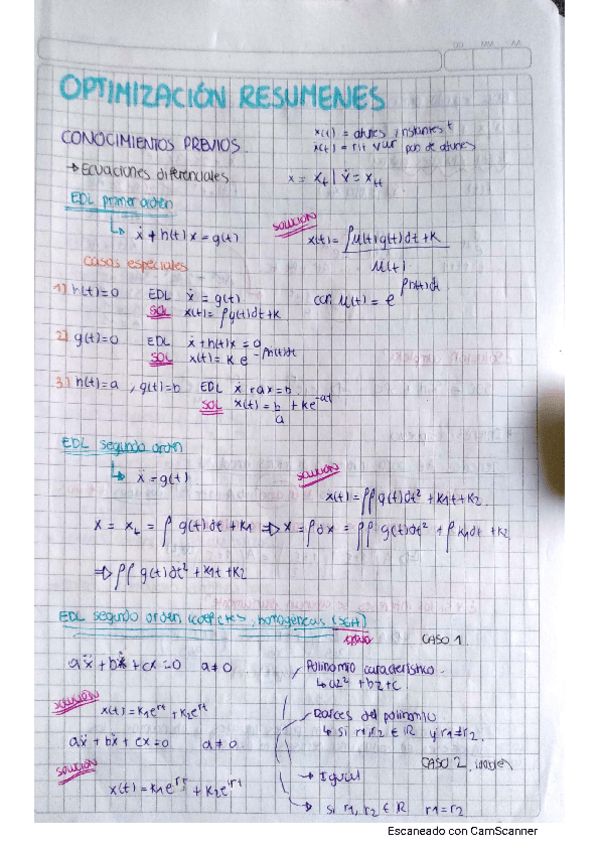 OPTIMIZACIÓN RESUMENES
CONOCIMIENTOS PREVIOS
x(t) = atunes instantes t
ẋ(t) = rit var pob de atunes
→ Ecuaciones diferenciales
x = x_t | ẋ = x_tt
EDL primer orden
↳ ẋ + h(t)x = g(t)
SOLUCIÓN
x(t) = ∫μ(t)g(t)dt + k / μ(t)
con μ(t) = e^∫h(t)dt
casos especiales
1) h(t)=0 EDL ẋ = g(t)
SOL x(t) = ∫g(t)dt + k
2) g(t)=0 EDL ẋ + h(t)x = 0
SOL x(t) = k e^-∫h(t)dt
3) h(t)=a , g(t)=b EDL ẋ + ax = b
SOL x(t) = b/a + ke^-at
EDL segundo orden
↳ ẍ = g(t)
SOLUCIÓN
x(t) = ∫∫ g(t)dt² + k1t + k2
ẋ = x_t = ∫ g(t)dt + k1 ⇒ x = ∫dx = ∫∫ g(t)dt² + ∫ k1dt + k2
⇒ ∫∫ g(t)dt² + k1t + k2
EDL segundo orden (coefctes, homogéneas (SGH)
CASO 1.
aẍ + bẋ + cx = 0 a≠0
Polinomio característico
↳ az² + bz + c.
SOLUCIÓN
x(t) = k1e^rt + k2e^rt
Raices del polinomio
↳ si r1,r2 ∈ ℝ y r1≠r2.
aẍ + bẋ + cx = 0 a≠0.
CASO 2.
SOLUCIÓN
x(t) = k1e^rt + k2e^rt
→ Igual
↳ si r1, r2 ∈ ℝ r1=r2
Escaneado con CamScanner